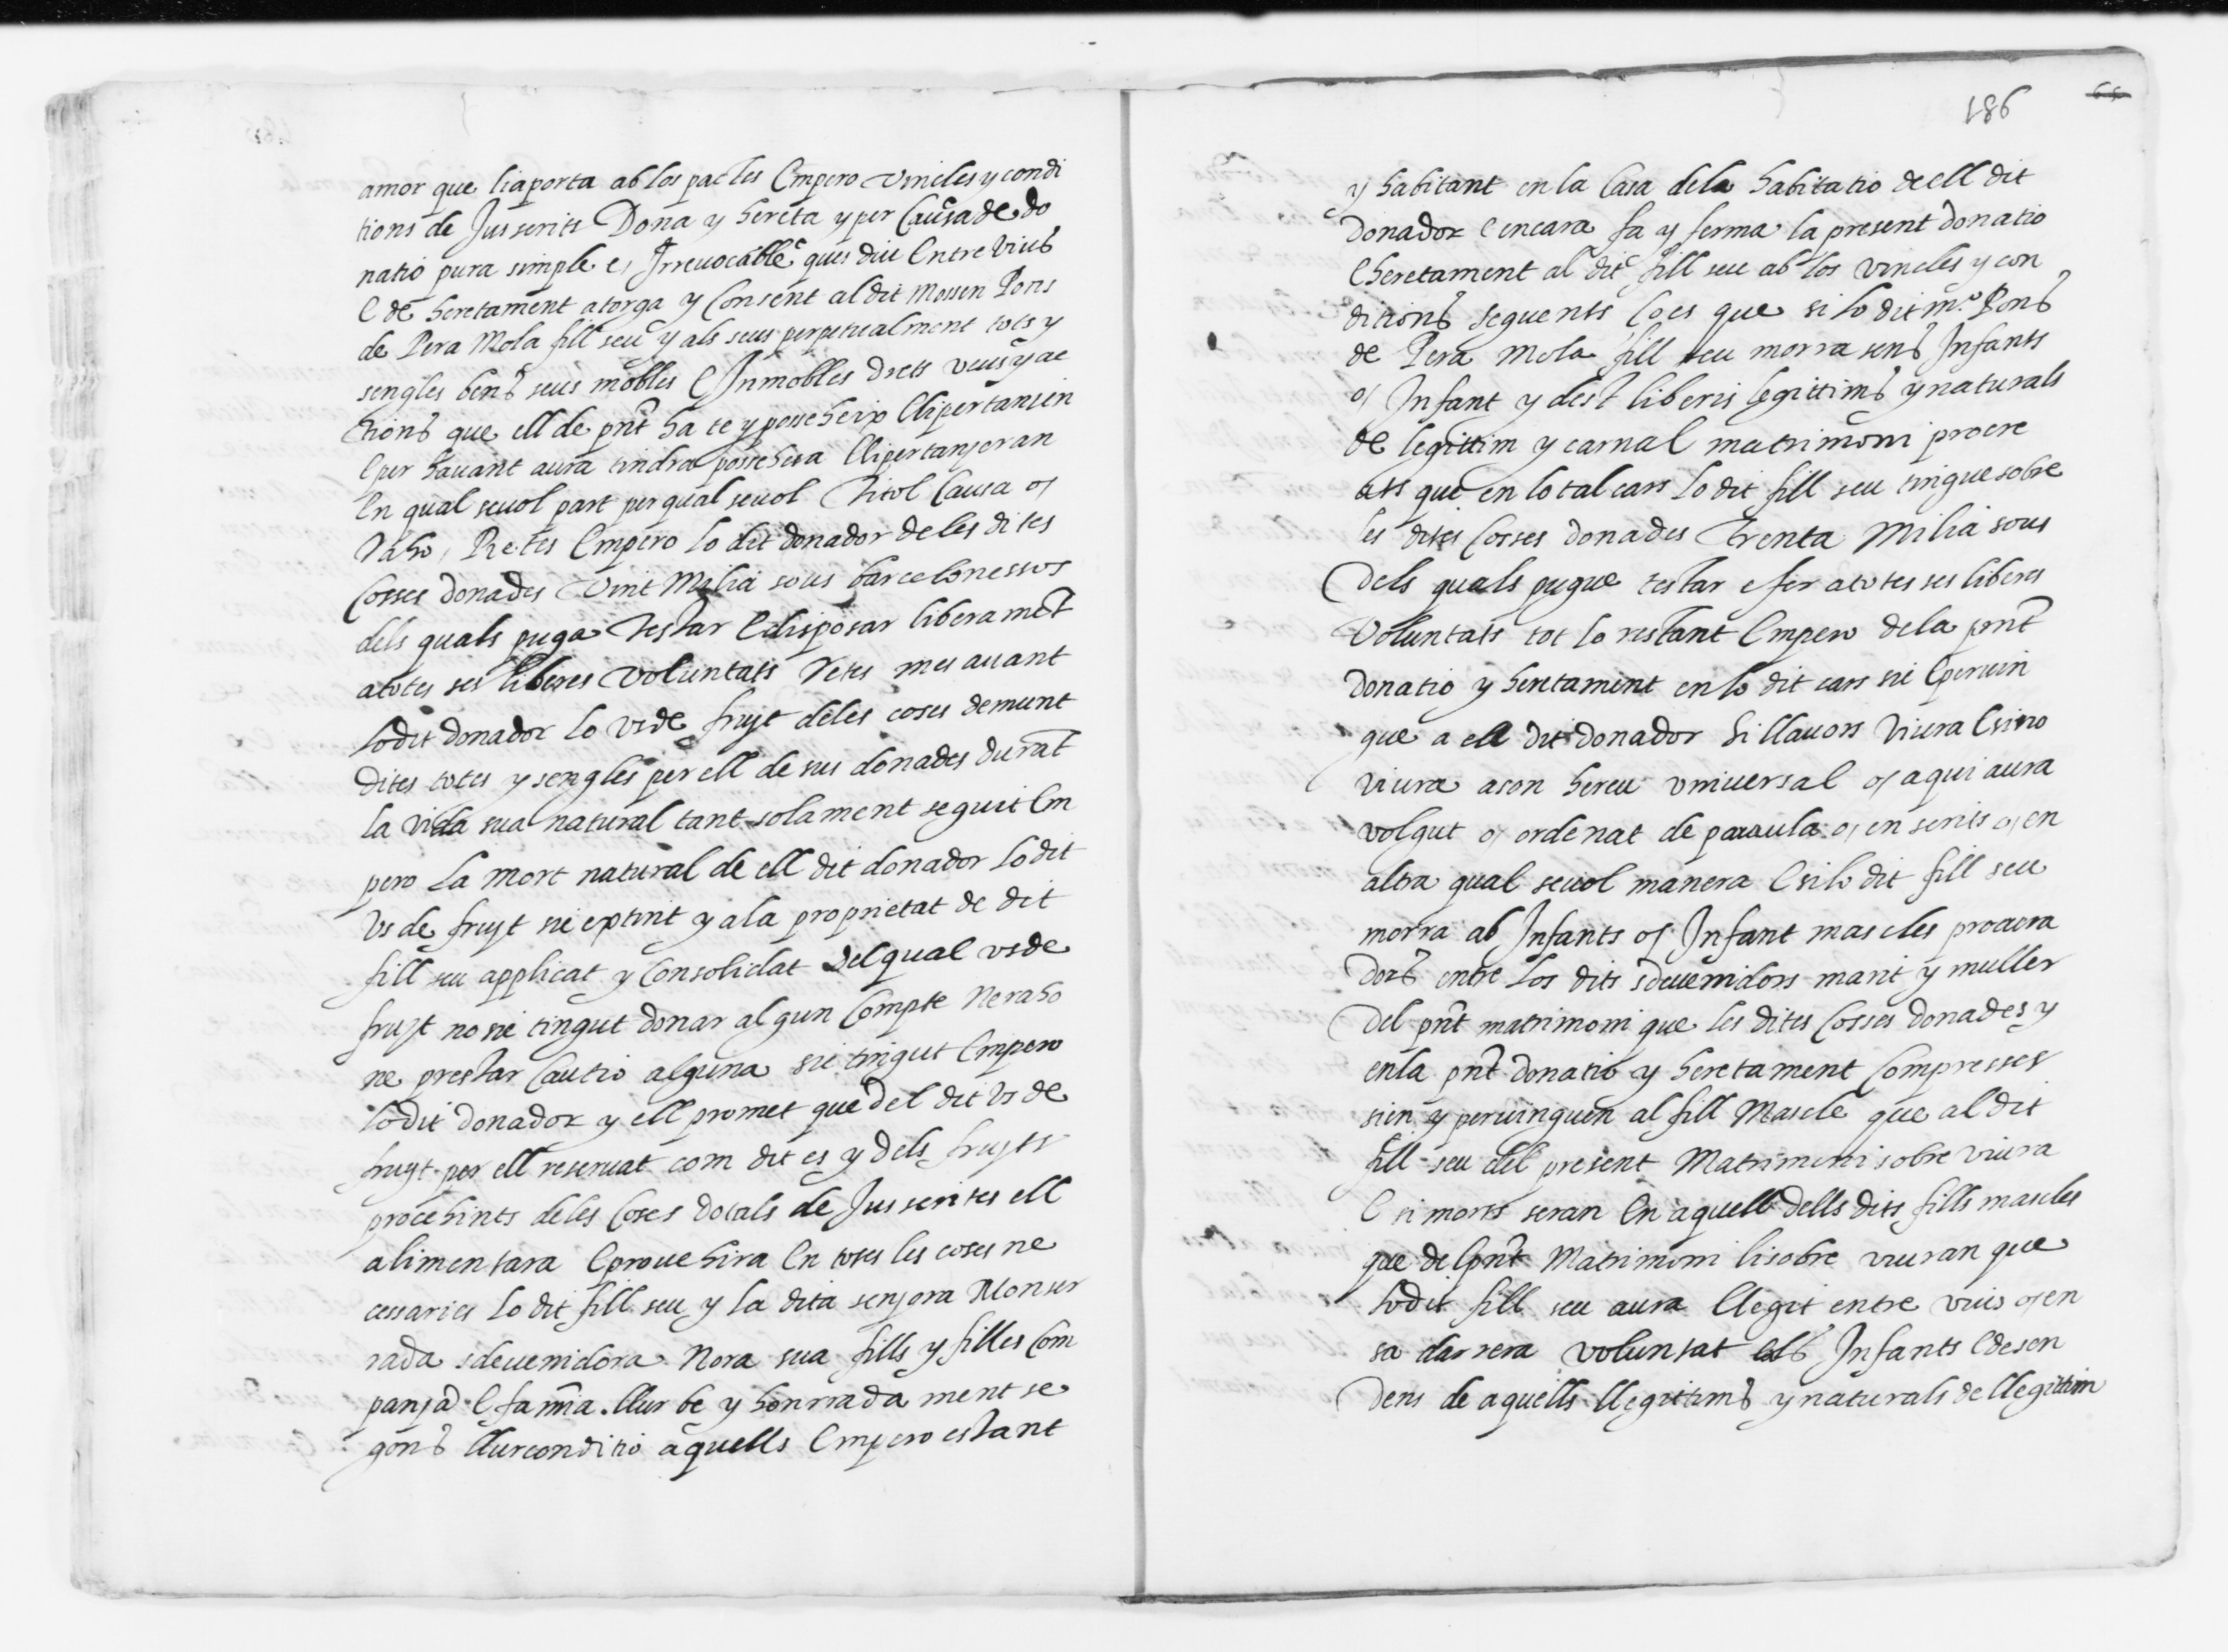 amor que liaporta ab los pactes Empero vincles y condi
tions de Jusscrits Dona y hereta y per Causa de do
natio pura simple e, Irreuocable ques diu Entre vius
E de heretament atorga y Consent al dit Mossen Pons
de Pera Mola fill seu y als seus perpetualment tots y
sengles bens seus mobles E Inmobles drets veus y ac
tions que ell de pnt ha te y posseheix Elipertanjen
E per hauant aura tindra possehira Elipertanjeran
En qual seuol part per qual seuol Titol Causa o,
Raho, Retes Empero lo dit donador de les dites
Cosses donades Vint Milia sous barcelonessos
dels quals puga testar E disposar liberament
atotes ses liberes voluntats Retes mes auant
lo dit donador lo vsde fruyt deles coses demunt
dites totes y sengles per ell de sus donades durat
la vida sua natural tant solament seguit Em
pero La mort natural de ell dit donador lo dit
Vs de fruyt sie extint y ala proprietat de dit
fill seu applicat y Consolidat Del qual vsde
fruyt no sie tingut donar algun Compte Ne raho
ne prestar Cautio alguna sie tingut Empero
lo dit donador y ell promet que del dit Vs de
fruyt per ell reseruat com dit es y dels fruyts
procehints deles Coses dotals de Jusscrites ell
alimentara E prouehira En totes les coses ne
cessaries lo dit fill seu y la dita senjora Monser
rada sdeuenidora Nora sua fills y filles Com
panja E famia. llur be y honrrada ment se
gons llur conditio aquells Empero estant
186
65
y habitant en la Casa dela habitatio de ell dit
donador E encara fa y ferma la present donatio
E heretament al dit fill seu ab los vincles y con
ditions seguents Ço es que si lo dit mo. Pons
de Pera Mola fill seu morra sens Infants
o, Infant y dest liberis legittims y naturals
de legittim y carnal matrimoni procre
ats que en lo tal cars lo dit fill seu tingue sobre
les dites Cosses donades Trenta Milia sous
Dels quals pugue testar e fer atotes ses liberes
Voluntats tot lo restant Empero dela pnt
donatio y heretament en lo dit cars sie E peruin
que a ell dit donador si llauors Viura E si no
viura ason hereu vniuersal o, aqui aura
volgut o, ordenat de paraula o, en scrits o, en
altra qual seuol manera E si lo dit fill seu
morra ab Infants o, Infant mascles procrea
dors entre los dits sdeuenidors marit y muller
Del pnt matrimoni que les dites Cosses donades y
enla pnt donatio y heretament Compresses
sien y peruinguen al fill Mascle que al dit
fill seu del present Matrimoni sobre viura
E si morts seran En aquell dells dits fills mascles
que del pnt Matrimoni li sobre viuran que
lo dit fill seu aura Elegit entre vius o, en
sa darrera voluntat els Infants E desen
Dens de aquells llegittims y naturals de llegittim